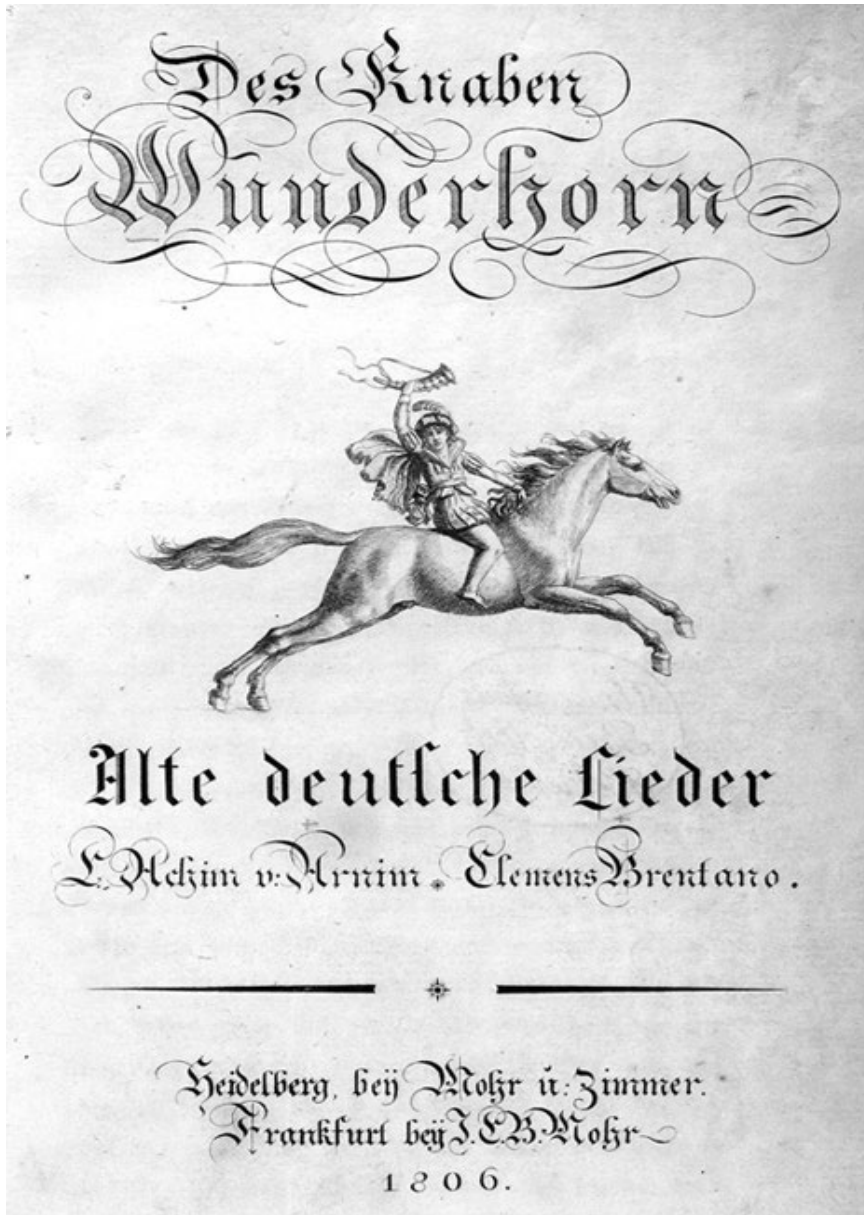 Des Knaben
Wunderhorn
Alte deutſche Lieder
L. Achim v. Arnim. Clemens Brentano.
Heidelberg, beÿ Mohr u. Zimmer.
Frankfurt beÿ J. C. B. Mohr
1806.